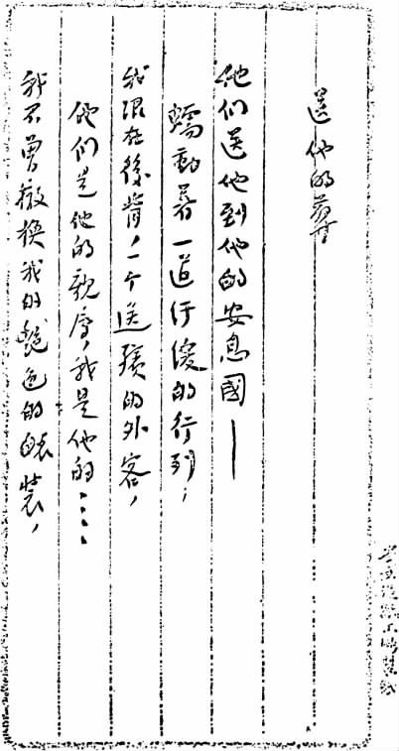 送他的葬
他们送他到他的安息國——
蠕動着一道纡缓的行列；
我跟在後背，一个送殯的外客，
他们是他的親属，我是他的……
我不曾撤换我的艷色的装，